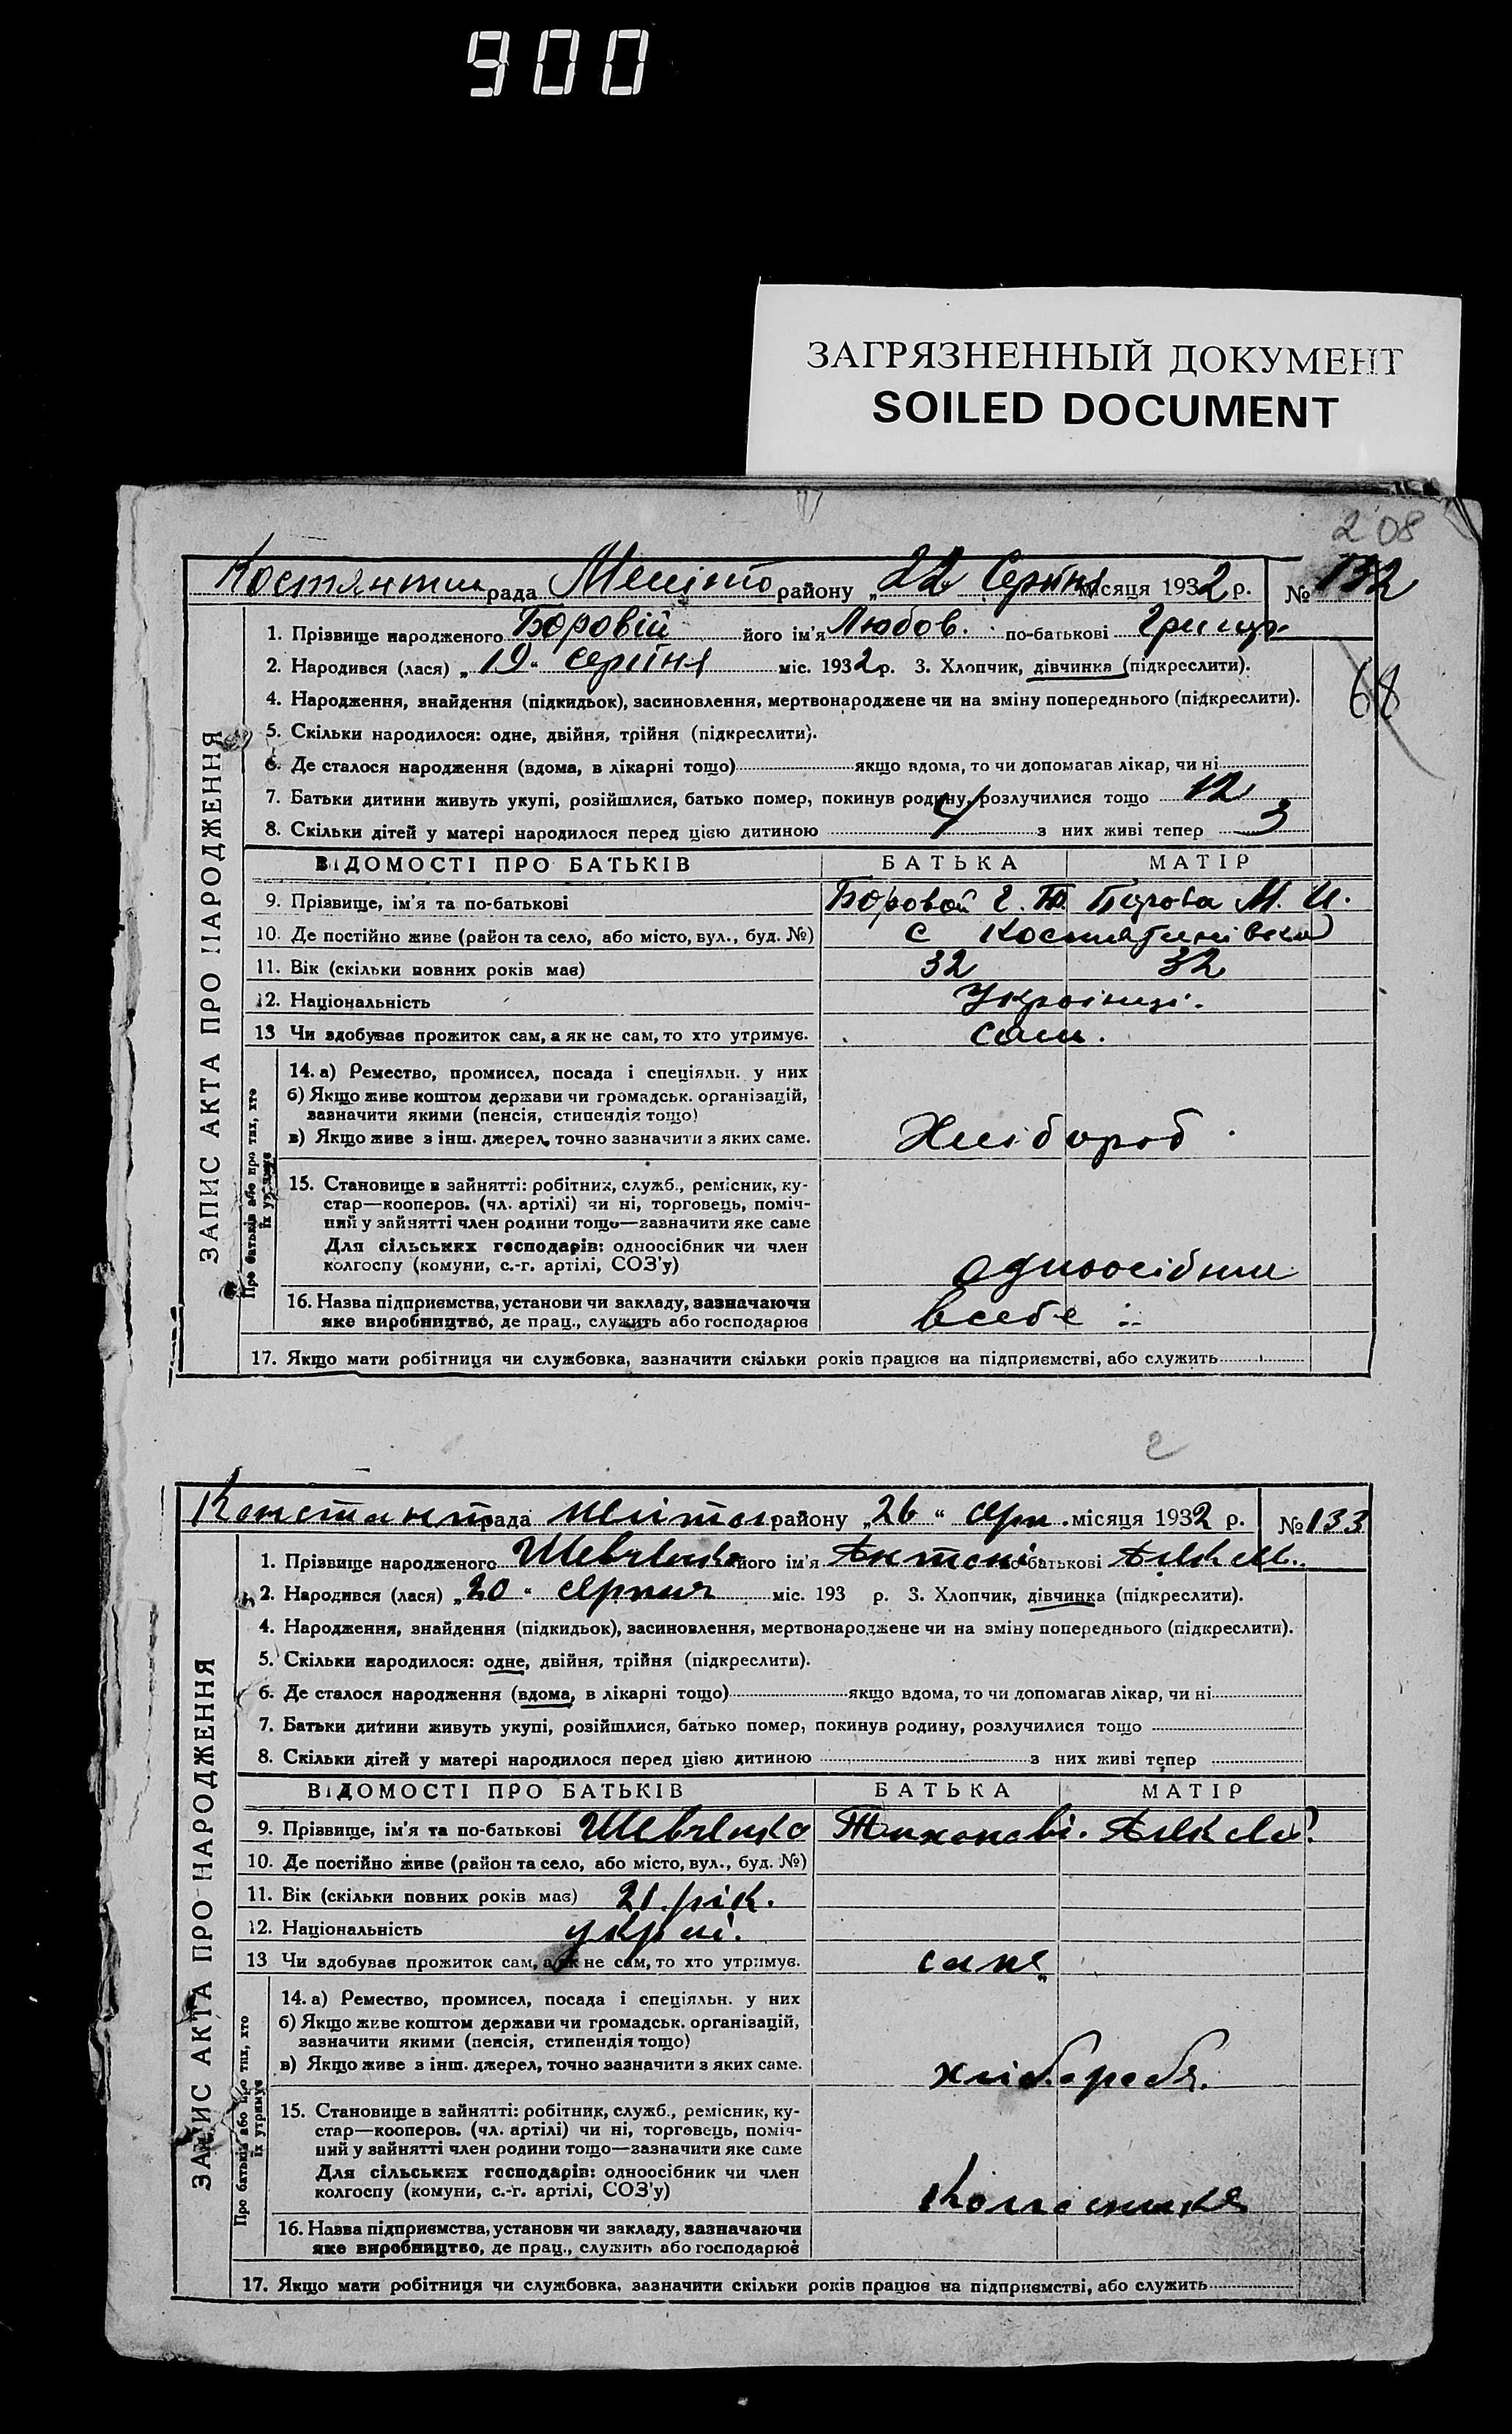 900
ЗАГРЯЗНЕННЫЙ ДОКУМЕНТ
SOILED DOCUMENT
208
Костянтин рада Меліто району „22 Серпня місяця 1932 р. № 132
1. Прізвище народженого Боровій його ім'я Любов. по-батькові Григор.
2. Народився (лася) „19" серпня міс. 1932 р. 3. Хлопчик, дівчинка (підкреслити).
68
4. Народження, знайдення (підкидьок), засиновлення, мертвонароджене чи на зміну попереднього (підкреслити).
5. Скільки народилося: одне, двійня, трійня (підкреслити).
6. Де сталося народження (вдома, в лікарні тощо) якщо вдома, то чи допомагав лікар, чи ні
7. Батьки дитини живуть укупі, розійшлися, батько помер, покинув родину, розлучилися тощо 12
8. Скільки дітей у матері народилося перед цією дитиною 4 з них живі тепер 3
ВІДОМОСТІ ПРО БАТЬКІВ БАТЬКА МАТІР
9. Прізвище, ім'я та по-батькові Боровой Г. Борова М. И.
10. Де постійно живе (район та село, або місто, вул., буд. №) с
11. Вік (скільки повних років має) 32 32
12. Національність Українці.
13 Чи здобуває прожиток сам, а як не сам, то хто утримує. сами.
ЗАПИС АКТА ПРО НАРОДЖЕННЯ
Про батьків або про тих, хто їх утримує
14. а) Ремество, промисел, посада і спеціяльн. у них
б) Якщо живе коштом держави чи громадськ. організацій,
зазначити якими (пенсія, стипендія тощо)
в) Якщо живе з інш. джерел, точно зазначити з яких саме. Хлібороб
15. Становище в зайнятті: робітник, служб., ремісник, ку-
стар—кооперов. (чл. артілі) чи ні, торговець, поміч-
ний у зайнятті член родини тощо—зазначити яке саме
Для сільських господарів: одноосібник чи член
колгоспу (комуни, с.-г. артілі, СОЗ'у) одноосібник
16. Назва підприємства, установи чи закладу, зазначаючи
яке виробництво, де прац., служить або господарює всебе
17. Якщо мати робітниця чи службовка, зазначити скільки років працює на підприємстві, або служить
Констант рада Меліто району „26" серп. місяця 1932 р. № 133
1. Прізвище народженого Шевченко його ім'я по-батькові
2. Народився (лася) „20" серпня міс. 193 р. 3. Хлопчик, дівчинка (підкреслити).
4. Народження, знайдення (підкидьок), засиновлення, мертвонароджене чи на зміну попереднього (підкреслити).
5. Скільки народилося: одне, двійня, трійня (підкреслити).
6. Де сталося народження (вдома, в лікарні тощо) якщо вдома, то чи допомагав лікар, чи ні
7. Батьки дитини живуть укупі, розійшлися, батько помер, покинув родину, розлучилися тощо
8. Скільки дітей у матері народилося перед цією дитиною з них живі тепер
ВІДОМОСТІ ПРО БАТЬКІВ БАТЬКА МАТІР
9. Прізвище, ім'я та по-батькові Шевченко
10. Де постійно живе (район та село, або місто, вул., буд. №)
11. Вік (скільки повних років має) 21. рік.
12. Національність
13 Чи здобуває прожиток сам, а як не сам, то хто утримує. сама
ЗАПИС АКТА ПРО НАРОДЖЕННЯ
Про батьків або про тих, хто їх утримує
14. а) Ремество, промисел, посада і спеціяльн. у них
б) Якщо живе коштом держави чи громадськ. організацій,
зазначити якими (пенсія, стипендія тощо)
в) Якщо живе з інш. джерел, точно зазначити з яких саме.
15. Становище в зайнятті: робітник, служб., ремісник, ку-
стар—кооперов. (чл. артілі) чи ні, торговець, поміч-
ний у зайнятті член родини тощо—зазначити яке саме
Для сільських господарів: одноосібник чи член
колгоспу (комуни, с.-г. артілі, СОЗ'у)
16. Назва підприємства, установи чи закладу, зазначаючи
яке виробництво, де прац., служить або господарює
17. Якщо мати робітниця чи службовка, зазначити скільки років працює на підприємстві, або служить